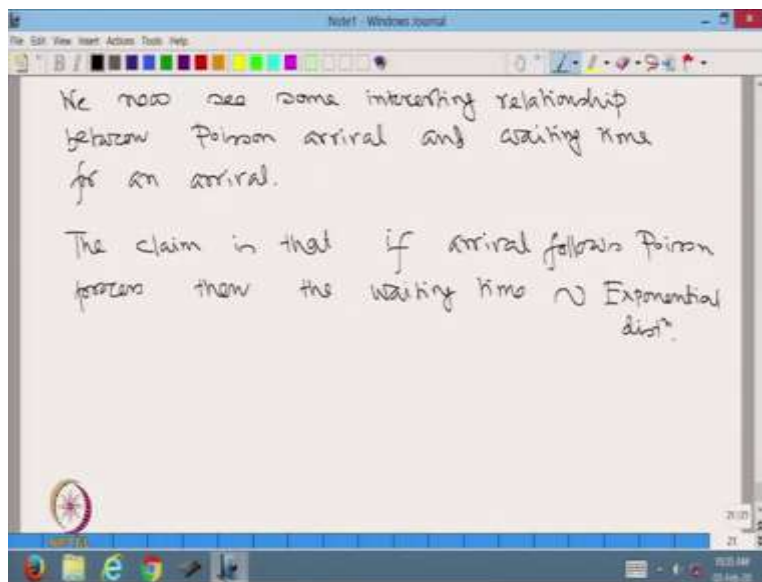 Note1 - Windows Journal
File Edit View Insert Actions Tools Help
We now see some interesting relationship
between Poisson arrival and waiting time
for an arrival.
The claim is that if arrival follows Poisson
process then the waiting time ~ Exponential
distⁿ.
NPTEL
21